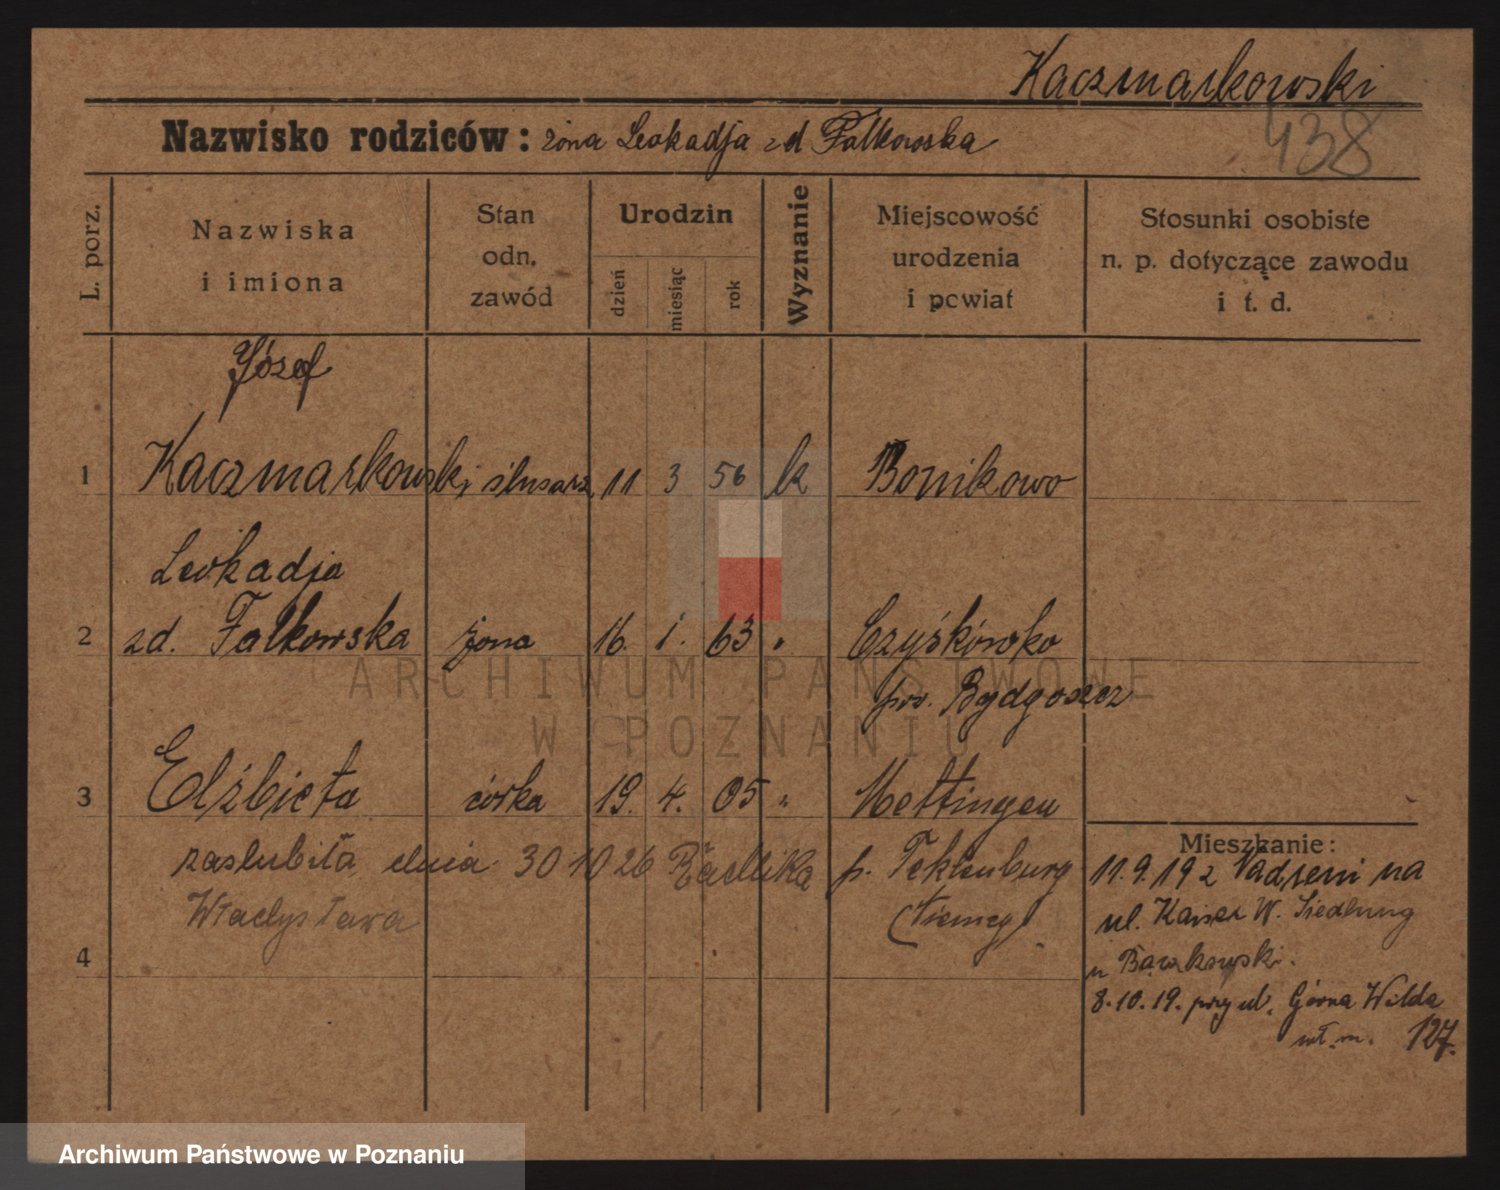 Kaczmarkowski
438
Nazwisko rodziców: żona Leokadja zd Falkowska
L. porz.
Nazwiska i imiona
Stan odn. zawód
Urodzin
dzień
miesiąc
rok
Wyznanie
Miejscowość urodzenia i powiat
Stosunki osobiste n. p. dotyczące zawodu i t. d.
Józef
1 Kaczmarkowski ślusarz 11 3 56 k Bonikowo
Leokadja
2 zd. Falkowska żona 16. 1. 63 " Czyżkówko
pow. Bydgoszcz
3 Elżbieta córka 19. 4. 05 " Mettingen
zaslubiła dnia 30 10 26 p. Teklenburg
Władysława (Niemcy)
4
Mieszkanie:
11.9.19 z na
ul. Kaiser W. Siedlung
u Barakowski.
8.10.19. przy ul. Górna Wilda
127.
ARCHIWUM PAŃSTWOWE
W POZNANIU
Archiwum Państwowe w Poznaniu